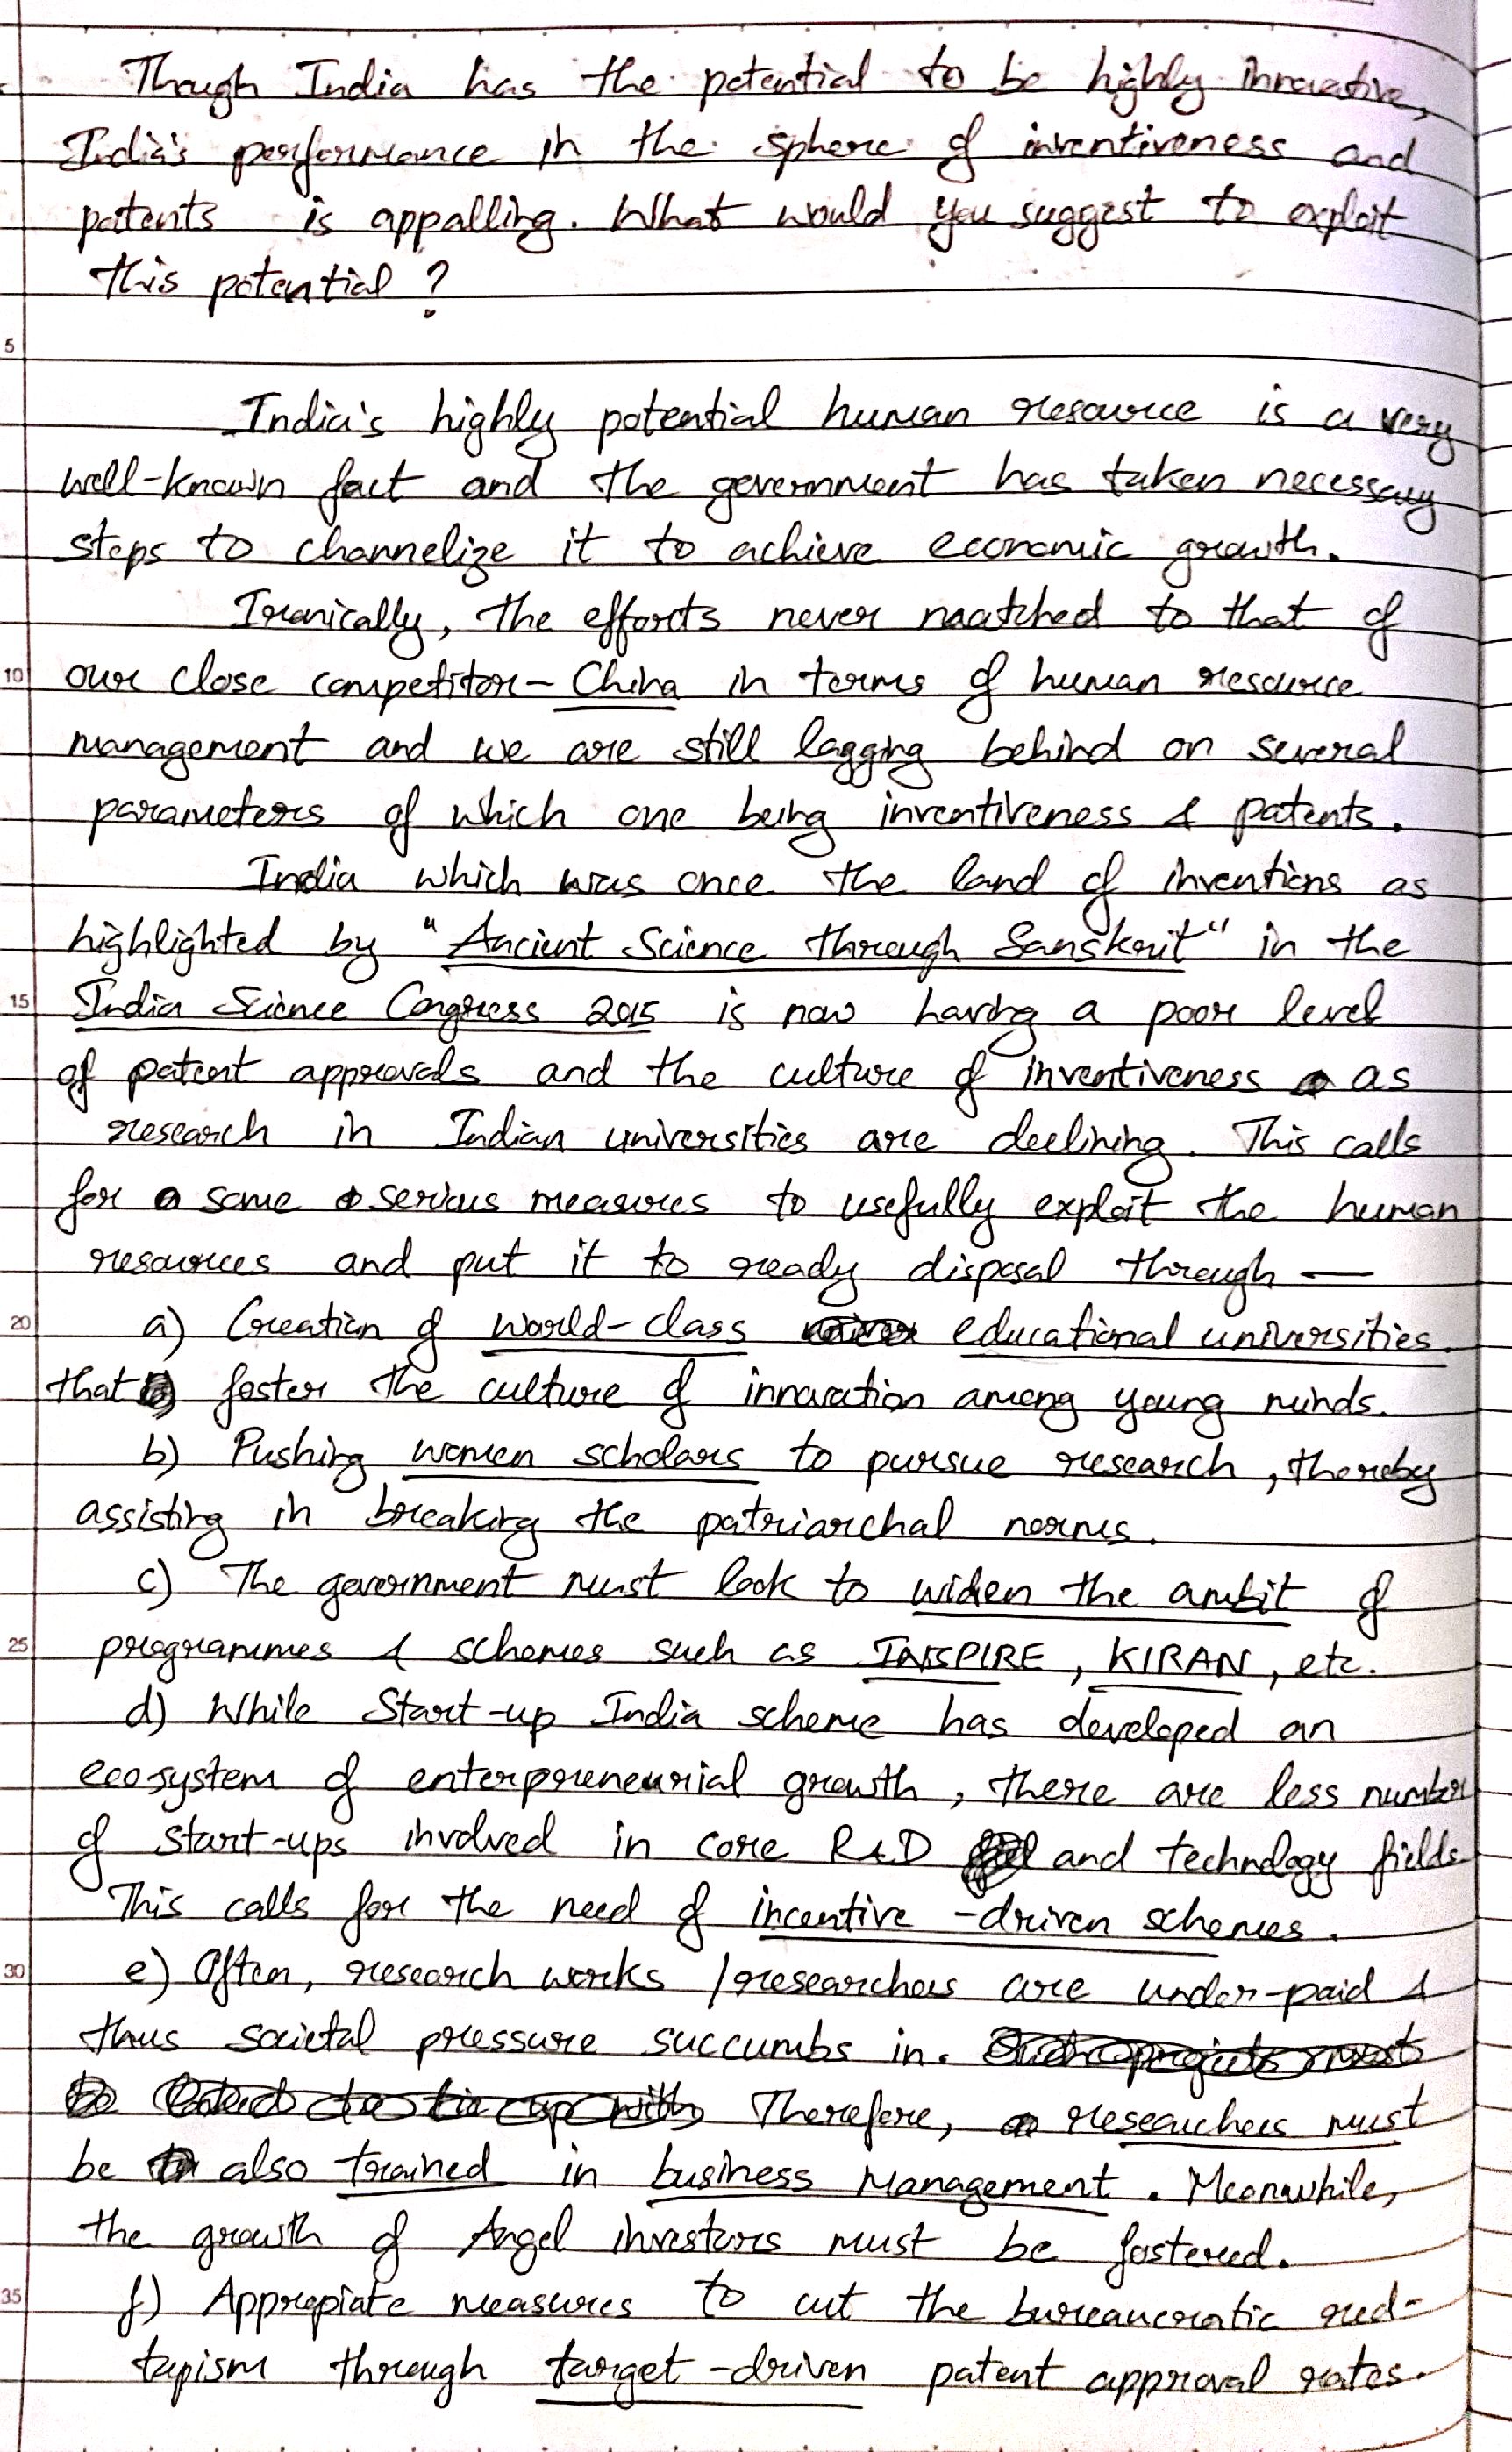 Though India has the potential to be highly innovative,
India's performance in the sphere of inventiveness and
patents is appalling. What would you suggest to exploit
this potential ?
5
India's highly potential human resource is a very
well-known fact and the government has taken necessary
steps to channelize it to achieve economic growth.
Ironically, the efforts never maatched to that of
10 our close competitor- China in terms of human resource
management and we are still lagging behind on several
parameters of which one being inventiveness & patents.
India which was once the land of inventions as
highlighted by "Ancient Science through Sanskrit" in the
15 India Science Congress 2015 is now having a poor level
of patent approvals and the culture of inventiveness as
research in Indian universities are declining. This calls
for some serious measures to usefully exploit the human
resources and put it to ready disposal through —
20 a) Creation of world-class educational universities
that foster the culture of innovation among young minds.
b) Pushing women scholars to pursue research, thereby
assisting in breaking the patriarchal norms.
c) The government must look to widen the ambit of
25 programmes & schemes such as INSPIRE, KIRAN, etc.
d) While Start-up India scheme has developed an
ecosystem of enterpreneurial growth, there are less number
of start-ups involved in core R&D and technology fields
This calls for the need of incentive-driven schemes.
30 e) Often, research works /researchers are under-paid &
thus societal pressure succumbs in. Therefore, researchers must
be also trained in business management. Meanwhile,
the growth of Angel investors must be fostered.
35 f) Appropiate measures to cut the bureaucratic red-
tapism through target-driven patent approval rates.